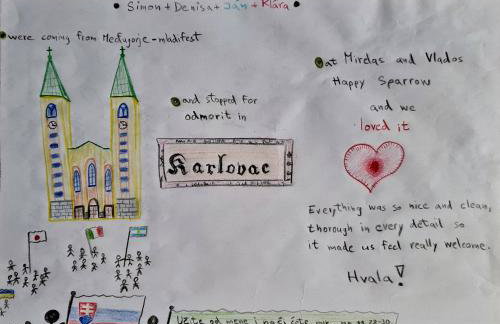 • Simon + Denisa + Ján + Klára •
were coming from Međugorje - mladifest
and stopped for
odmorit in
Karlovac
at Mirdas and Vlados
Happy Sparrow
and we
loved it
Everything was so nice and clean,
thorough in every detail so
it made us feel really welcome.
Hvala!
Učite od mene i naći ćete